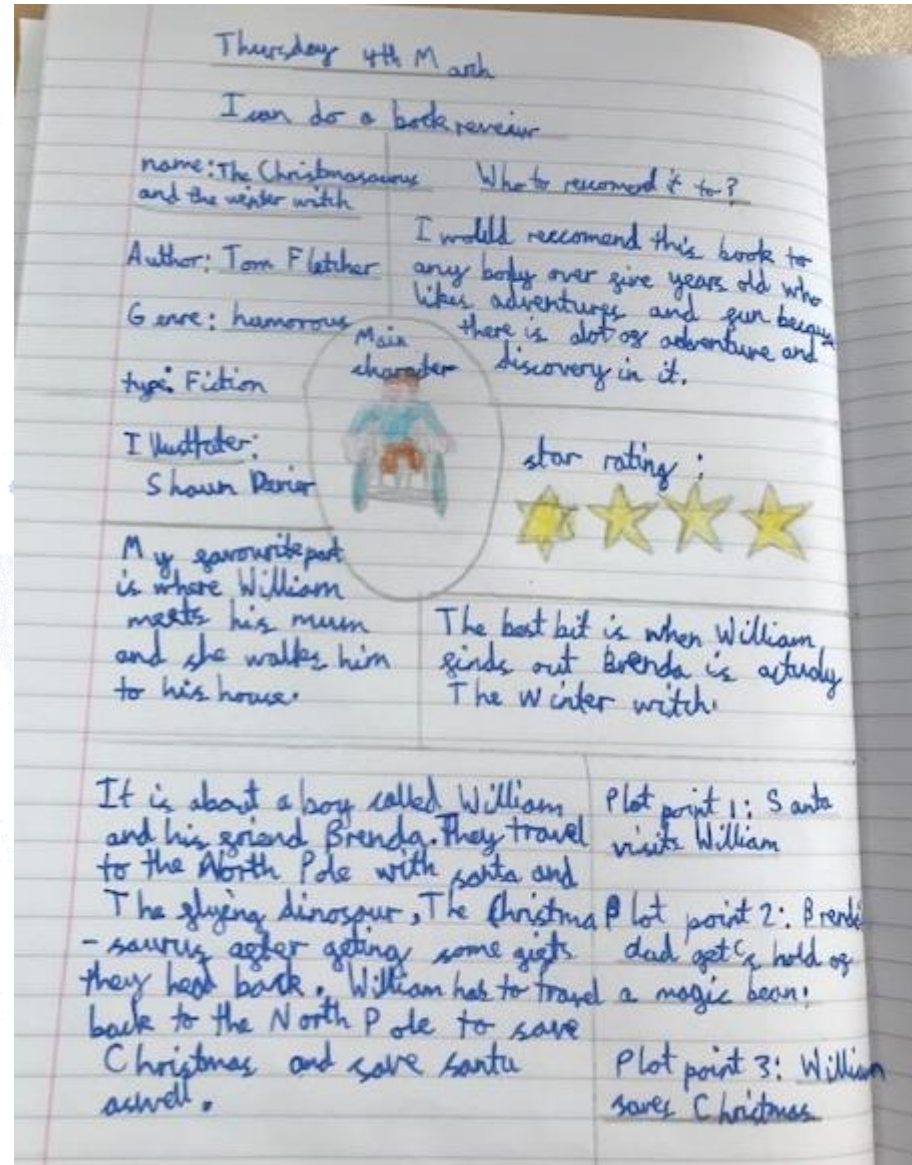 Thursday 4th March
I can do a book reveiw
name: The Christmasaurus
and the winter witch
Author: Tom Fletcher
Genre: humorous
type: Fiction
Illustater:
Shaun
Main
character
Who to reccomend it to?
I would reccomend this book to
any body over five years old who
likes adventures and fun because
there is alot of adventure and
discovery in it.
star rating:
My favourite part
is where William
meets his mum
and she walks him
to his house.
The best bit is when William
finds out Brenda is actualy
The Winter witch.
It is about a boy called William
and his friend Brenda. They travel
to the North Pole with santa and
The flying dinosaur, The Christma
-saurus after geting some gifts
they head back. William has to travel
back to the North Pole to save
Christmas and save santa
aswell.
Plot point 1: Santa
visits William
Plot point 2:
dad get's hold of
a magic bean.
Plot point 3: William
saves Christmas